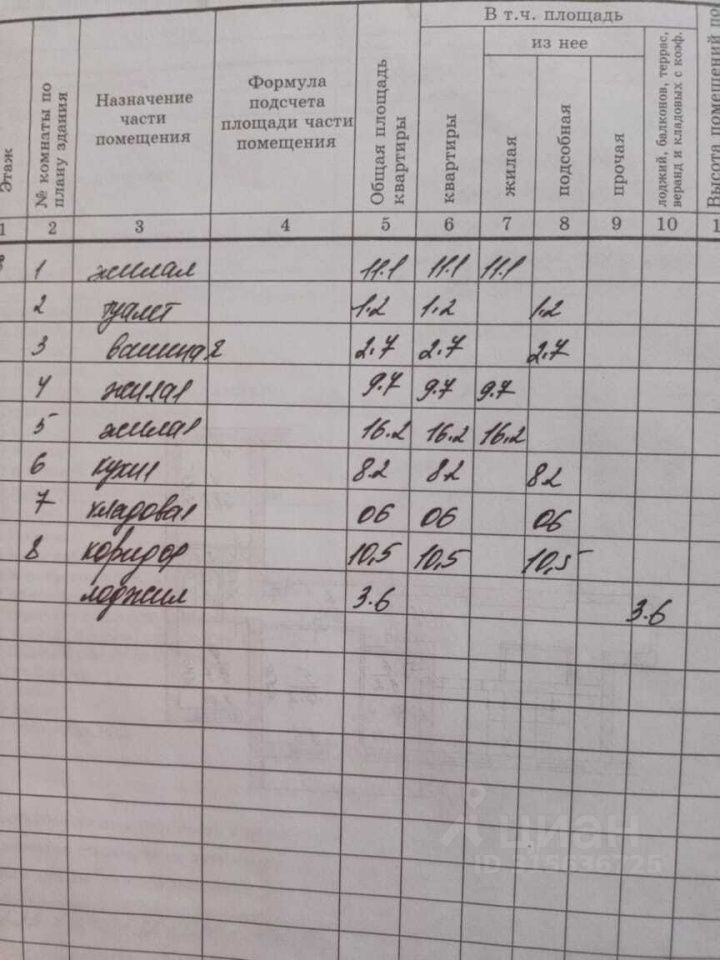 В т.ч. площадь
из нее
Этаж
№ комнаты по плану здания
Назначение части помещения
Формула подсчета площади части помещения
Общая площадь квартиры
квартиры
жилая
подсобная
прочая
лоджий, балконов, террас, веранд и кладовых с коэф.
Высота помещений
1 2 3 4 5 6 7 8 9 10 1
1 жилая 11.1 11.1 11.1
2 туалет 1.2 1.2 1.2
3 ванная 2.7 2.7 2.7
4 жилая 9.7 9.7 9.7
5 жилая 16.2 16.2 16.2
6 кухня 8.2 82 82
7 кладовая 06 06 06
8 коридор 10,5 10,5 10,5
лоджия 3.6 3.6
циан